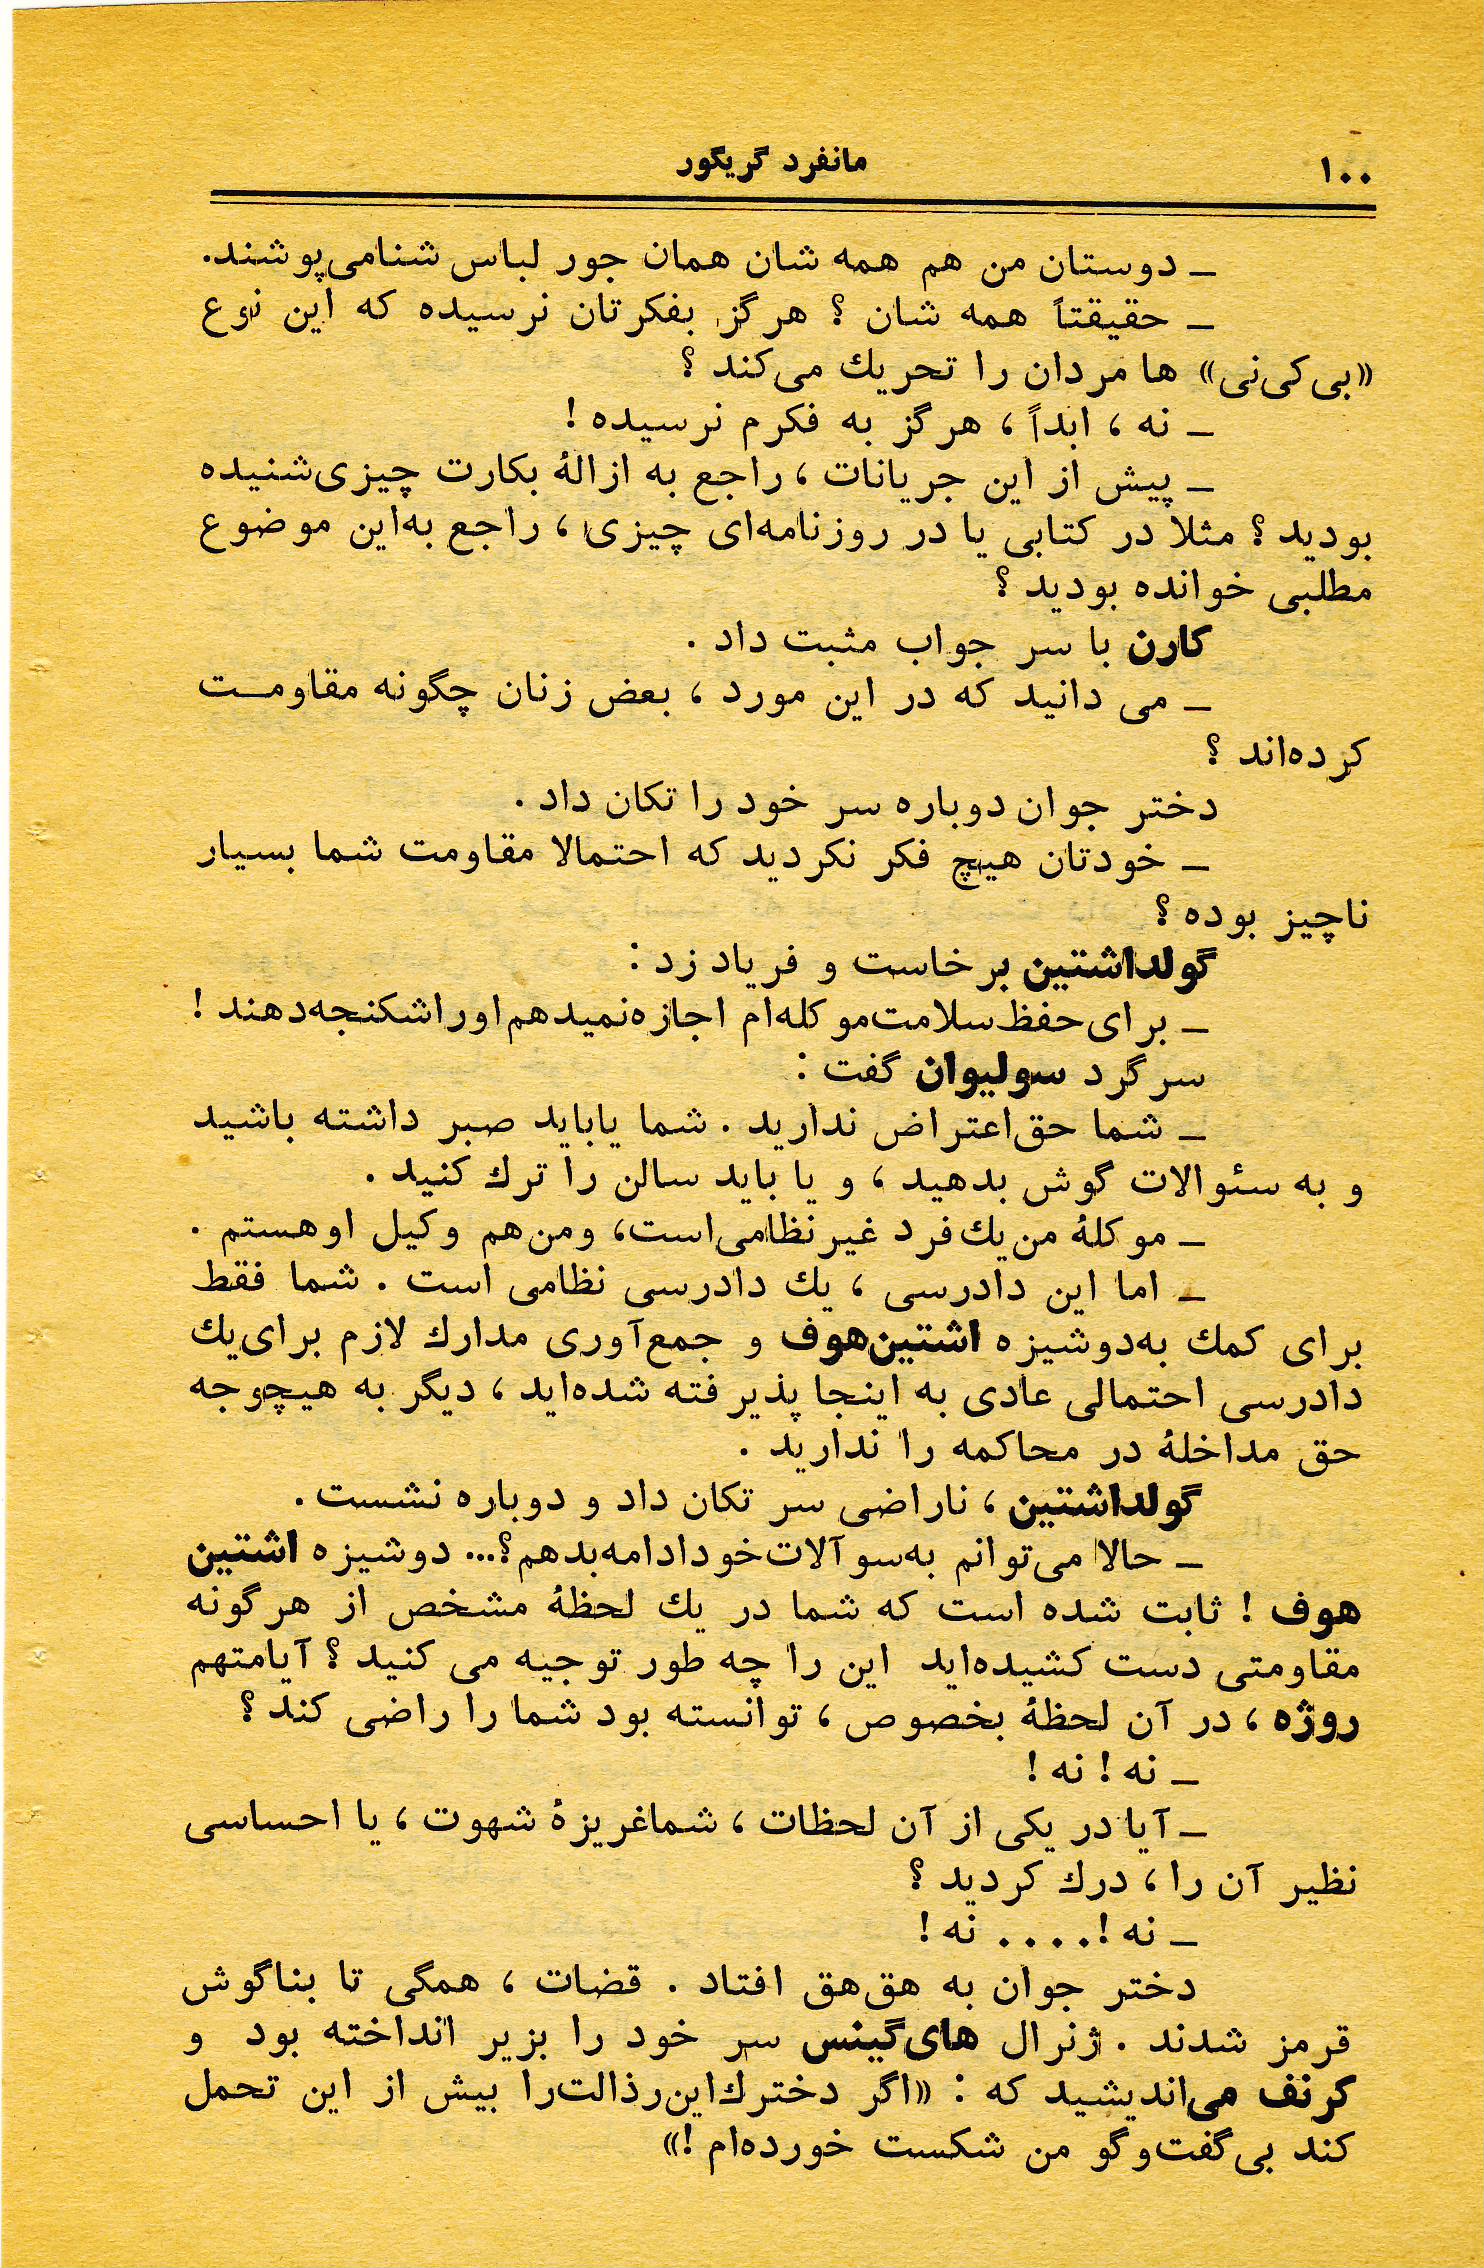 ۱۰۰
مانفرد گریگور
ـ دوستان من هم همه شان همان جور لباس شنا می‌پوشند.
ـ حقیقتاً همه شان ؟ هرگز بفکرتان نرسیده که این نوع
«بی‌کی‌نی» ها مردان را تحریك می‌کند ؟
ـ نه ، ابداً ، هرگز به فکرم نرسیده !
ـ پیش از این جریانات ، راجع به ازالهٔ بکارت چیزی شنیده
بودید ؟ مثلا در کتابی یا در روزنامه‌ای چیزی ، راجع به‌این موضوع
مطلبی خوانده بودید ؟
کارن با سر جواب مثبت داد .
ـ می دانید که در این مورد ، بعض زنان چگونه مقاومـت
کرده‌اند ؟
دختر جوان دوباره سر خود را تکان داد .
ـ خودتان هیچ فکر نکردید که احتمالا مقاومت شما بسیار
ناچیز بوده ؟
گولداشتین برخاست و فریاد زد :
ـ برای حفظ سلامت موکله‌ام اجازه نمیدهم او را شکنجه دهند !
سرگرد سولیوان گفت :
ـ شما حق اعتراض ندارید . شما یا باید صبر داشته باشید
و به سئوالات گوش بدهید ، و یا باید سالن را ترك کنید .
ـ موکلهٔ من یك فرد غیر نظامی است، و من هم وکیل او هستم .
ـ اما این دادرسی ، یك دادرسی نظامی است . شما فقط
برای کمك به‌دوشیزه اشتین‌هوف و جمع‌آوری مدارك لازم برای یك
دادرسی احتمالی عادی به اینجا پذیرفته شده‌اید ، دیگر به هیچوجه
حق مداخلهٔ در محاکمه را ندارید .
گولداشتین ، ناراضی سر تکان داد و دوباره نشست .
ـ حالا می‌توانم به‌سوآلات خود ادامه بدهم؟... دوشیزه اشتین
هوف ! ثابت شده است که شما در یك لحظهٔ مشخص از هرگونه
مقاومتی دست کشیده‌اید این را چه طور توجیه می کنید ؟ آیا متهم
روژه ، در آن لحظهٔ بخصوص ، توانسته بود شما را راضی کند ؟
ـ نه ! نه !
ـ آیا در یکی از آن لحظات ، شما غریزهٔ شهوت ، یا احساسی
نظیر آن را ، درك کردید ؟
ـ نه !.... نه !
دختر جوان به هق‌هق افتاد . قضات ، همگی تا بناگوش
قرمز شدند . ژنرال های‌گینس سر خود را بزیر انداخته بود و
کرنف می‌اندیشید که : «اگر دخترك این رذالت را بیش از این تحمل
کند بی‌گفت‌وگو من شکست خورده‌ام !»